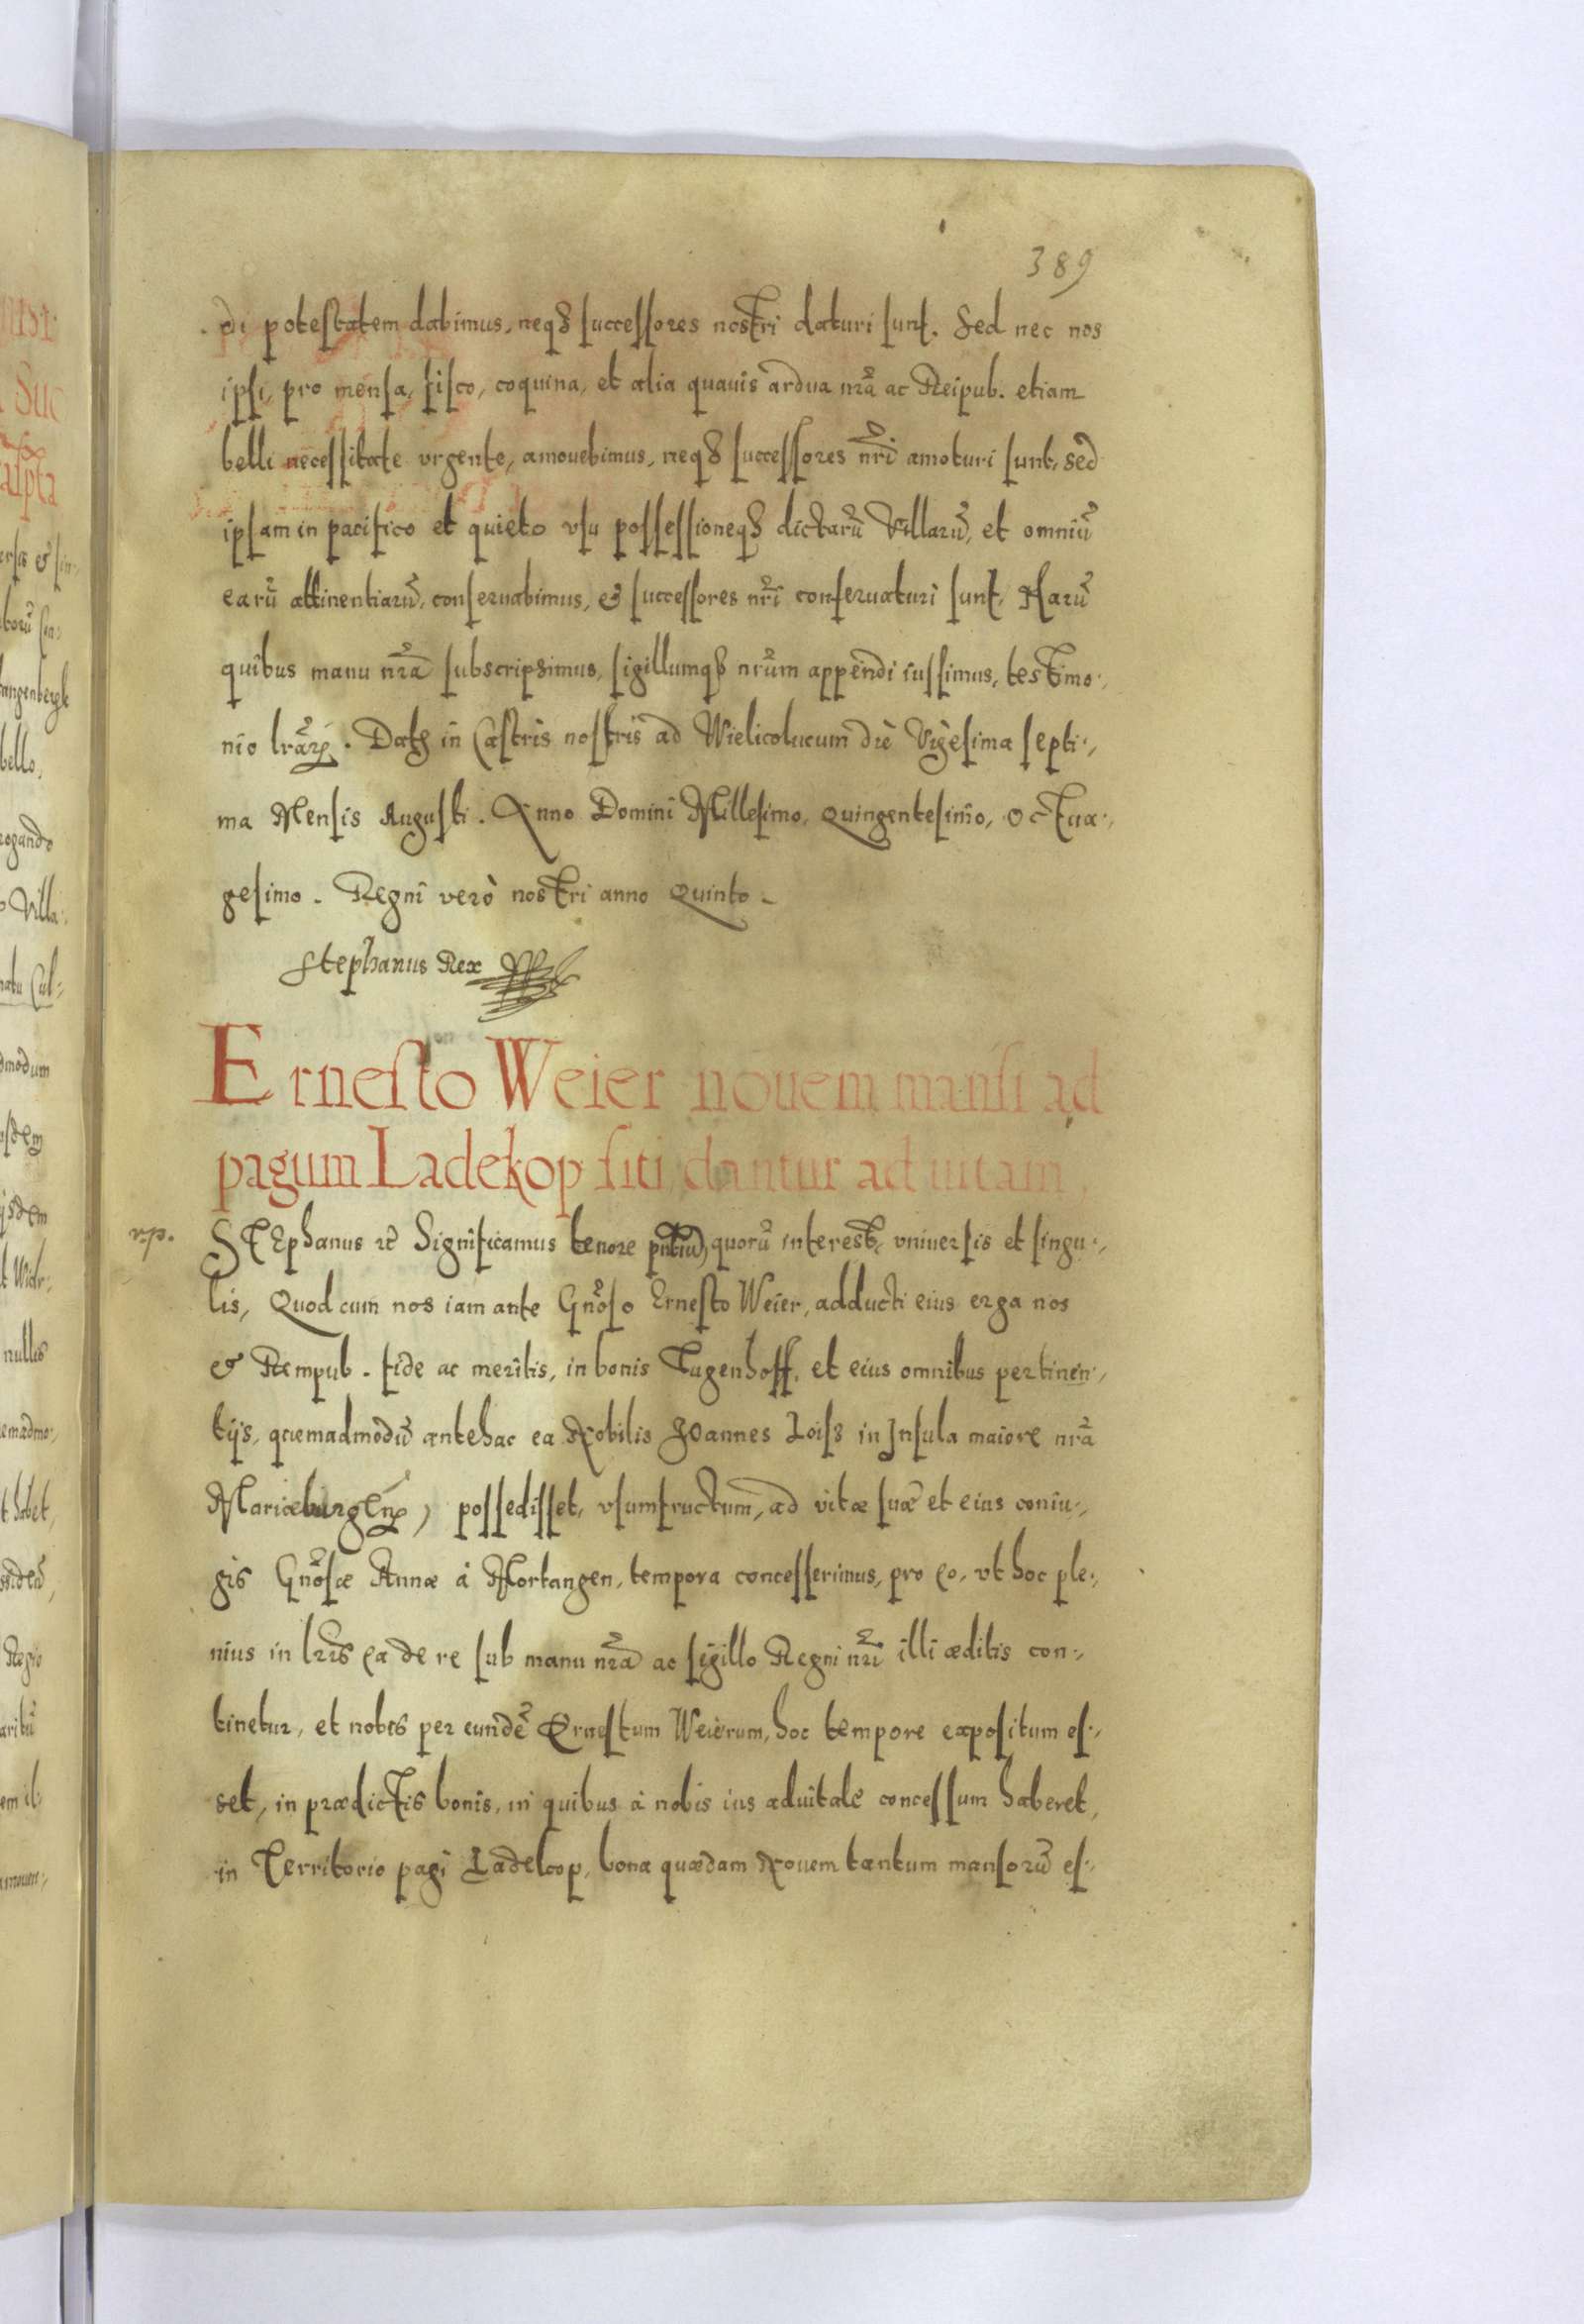 389
di potestatem dabimus, neq₃ successores nostri daturi sunt. Sed nec nos
ipsi, pro mensa, fisco, coquina, et alia quauis ardua nrã ac Reipub. etiam
belli necessitate vrgente, amouebimus, neq₃ successores nri amoturi sunt, sed
ipsam in pacifico et quieto vsu possessioneq₃ dictarũ Villarũ, et omniũ
earũ attinentiarũ, conseruabimus, & successores nri conseruaturi sunt. Harũ
quibus manu nrã subscripsimus, sigillumq₃ nrũm appendi iussimus, testimo⸗
nio lrãrꝝ. Datꝭ in Castris nostris ad Wielicolucum die Vigesima septi⸗
ma Mensis Augusti. Anno Domini Millesimo, quingentesimo, octua⸗
gesimo. Regni verò nostri anno Quinto.
Stephanus Rex
Ernesto Weier nouem mansi ad
pagum Ladekop siti dantur ad uitam,
rp.
STEphanus etc̃ Significamus tenore pñtiũ, quorũ interest, vniuersis et singu⸗
lis, Quod cum nos iam ante Gnõso Ernesto Weier, adducti eius erga nos
& Rempub. fide ac meritis, in bonis Tugenhoff, et eius omnibus pertinen⸗
tijs, quemadmodũ antehac ea Nobilis Joannes Loiss in Insula maiore nrã
Mariæburgenꝭ, possedisset, vsumfructum, ad vitæ suæ et eius coniu⸗
gis Gnõsæ Annæ à Mortangen, tempora concesserimus, pro eo, vt hoc ple⸗
nius in lrĩs ea de re sub manu nrã ac sigillo Regni nri illi æditis con⸗
tinetur, et nobis per eundẽ Ernestum Weierum, hoc tempore expositum es⸗
set, in prædictis bonis, in quibus à nobis ius aduitale concessum haberet,
in Territorio pagi Ladekop, bona quædam Nouem tantum mansorũ es⸗